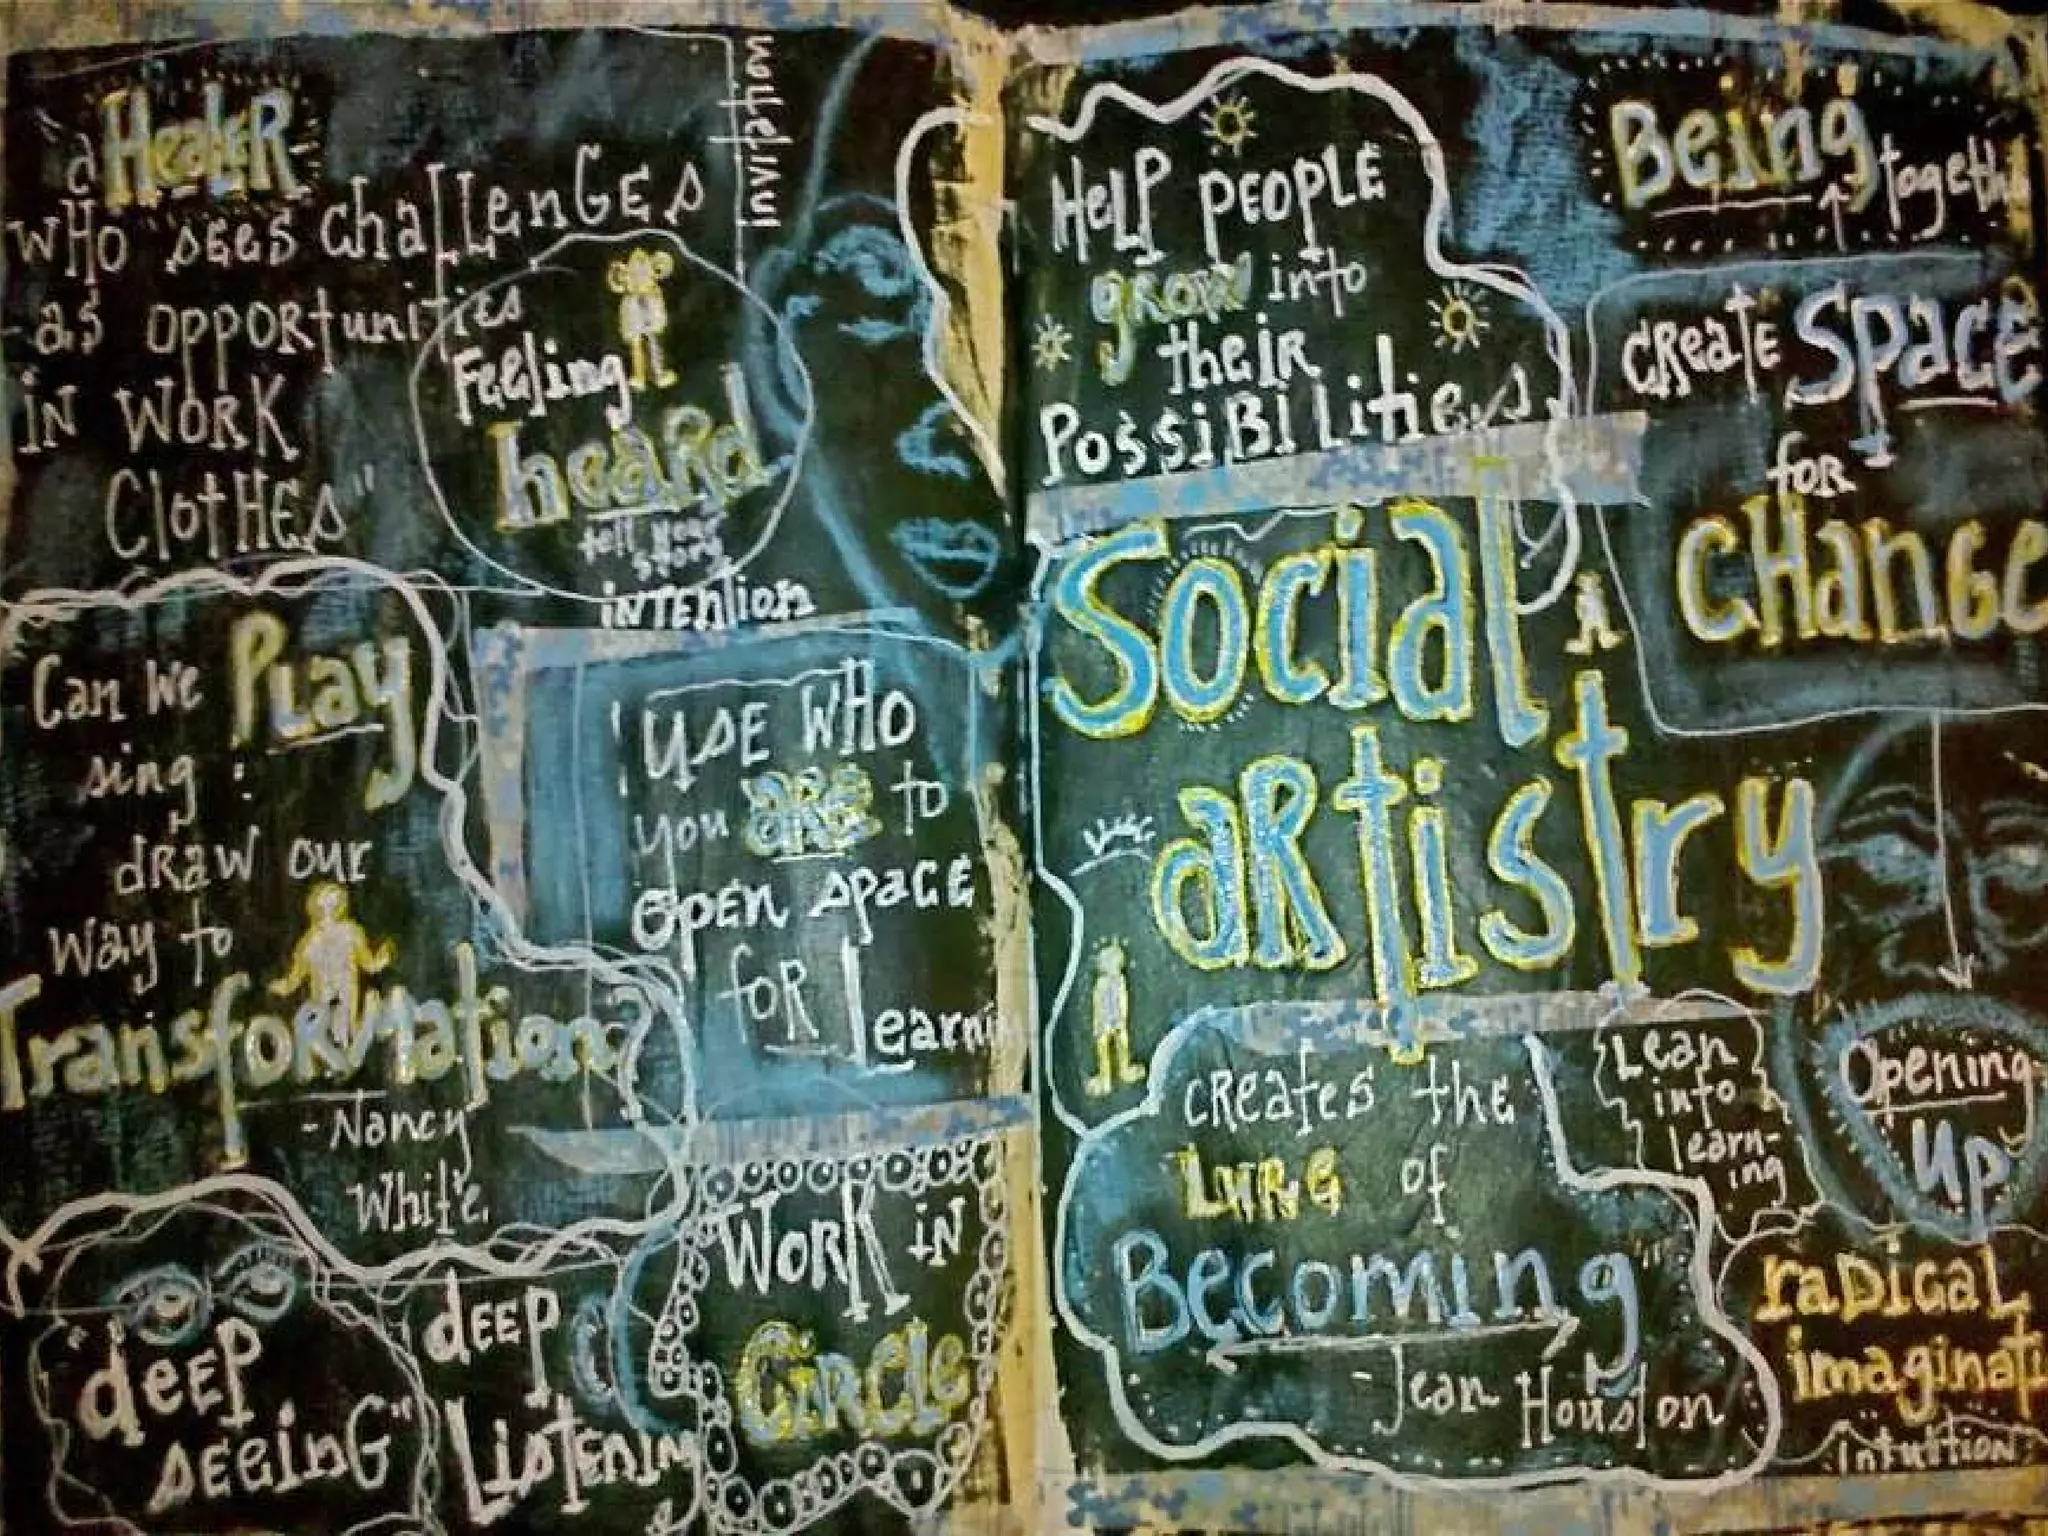 "a HealeR
WHO sees challenGes
as opportunities
in work
ClotHEs"
invitation
Feeling
heard
tell your
story
intention
Can we Play
sing :
draw our
way to
Transformation
- Nancy
White
"deep
seeing"
deep
Listening
Use who
you are to
open space
for Learni
Work in
Circle
Help people
grow into
their
Possibilities
Being
togeth
create Space
for
CHange
Social
artistry
creates the
Lure of
Becoming"
- Jean Houston
Lean
into
learn-
ing
Opening
Up
radical
imaginati
intuition